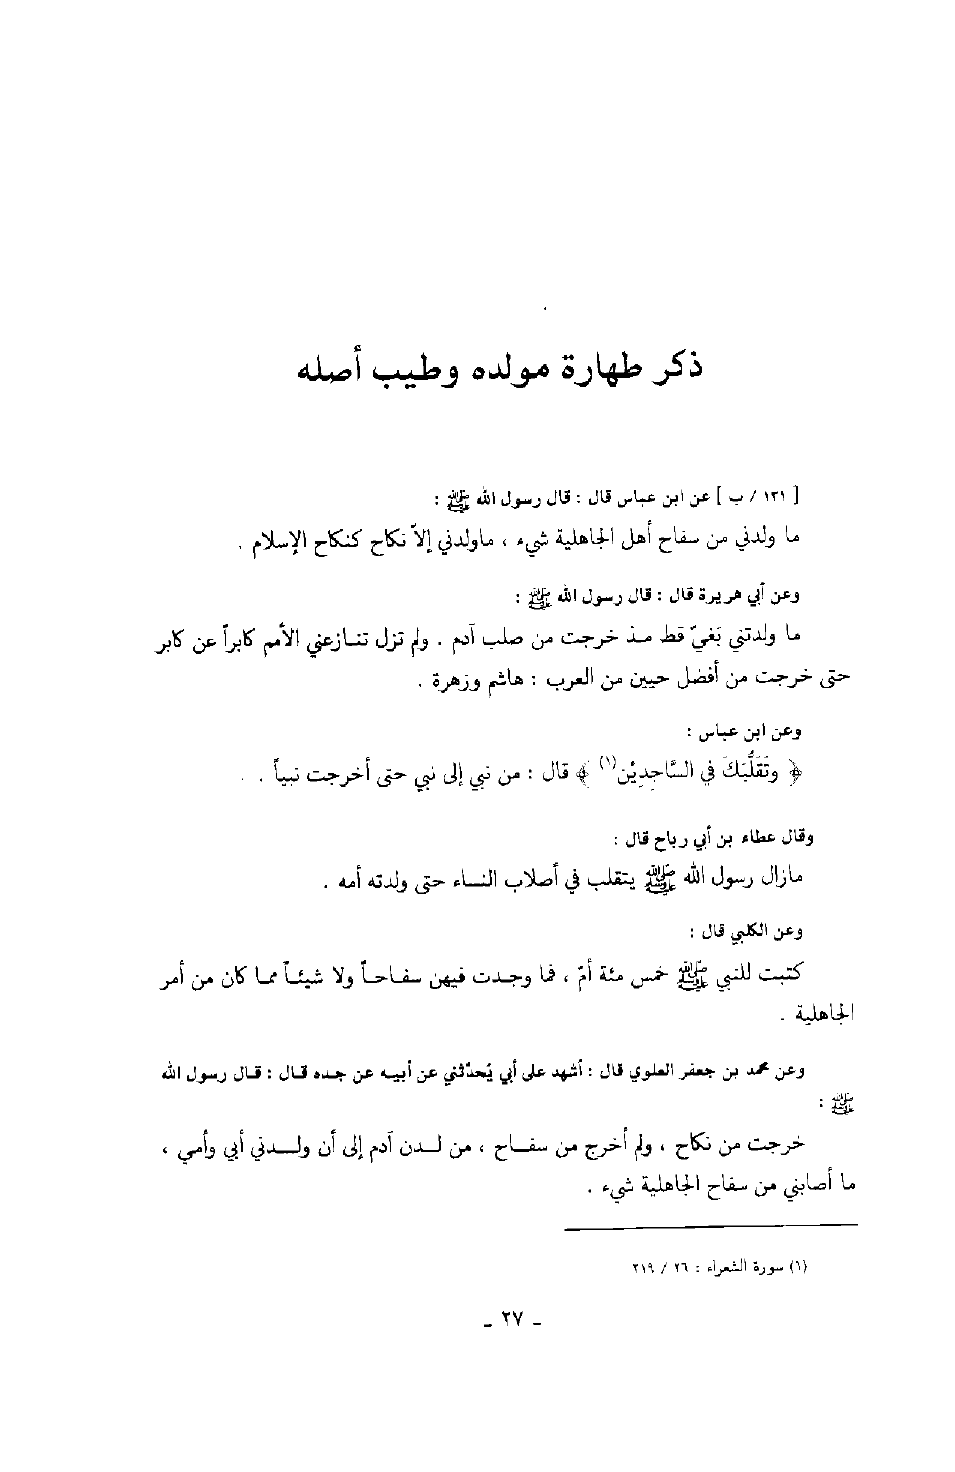 ذكر طهارة مولده وطيب أصله
[ ١٢١ / ب ] عن ابن عباس قال : قال رسول الله ﷺ :
ما ولدني من سفاح أهل الجاهلية شيء ، ماولدني إلاّ نكاح كنكاح الإسلام .
وعن أبي هريرة قال : قال رسول الله ﷺ :
ما ولدتني بَغيّ قط مـذ خرجت من صلب آدم . ولم تزل تنـازعني الأمم كابراً عن كابر
حتى خرجت من أفضل حيين من العرب : هاشم وزهرة .
وعن ابن عباس :
﴿ وتَقَلُّبَكَ في السَّاجِدِيْن(١) ﴾ قال : من نبي إلى نبي حتى أخرجت نبياً .
وقال عطاء بن أبي رباح قال :
مازال رسول الله ﷺ يتقلب في أصلاب النساء حتى ولدته أمه .
وعن الكلبي قال :
كتبت للنبي ﷺ خمس مئة أمّ ، فما وجـدت فيهن سفـاحـاً ولا شيئـاً ممـا كان من أمر
الجاهلية .
وعن محمد بن جعفر العلوي قال : أشهد على أبي يُحدّثني عن أبيـه عن جـده قـال : قـال رسول الله
ﷺ :
خرجت من نكاح ، ولم أخرج من سفـاح ، من لـدن آدم إلى أن ولـدني أبي وأمي ،
ما أصابني من سفاح الجاهلية شيء .
(١) سورة الشعراء : ٢٦ / ٢١٩
- ٢٧ -